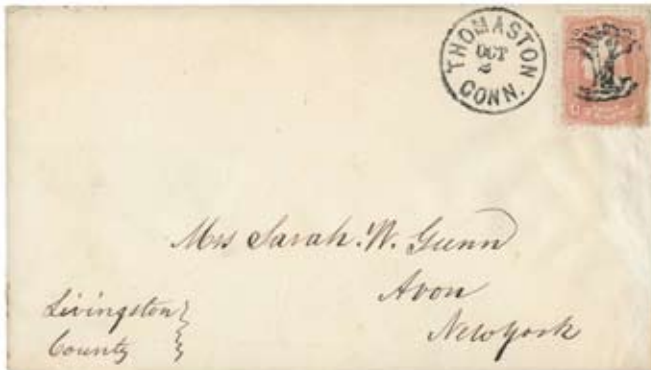 THOMASTON
OCT
2
CONN.
Mrs Sarah. W. Gunn
Avon
New York
Livingston
County